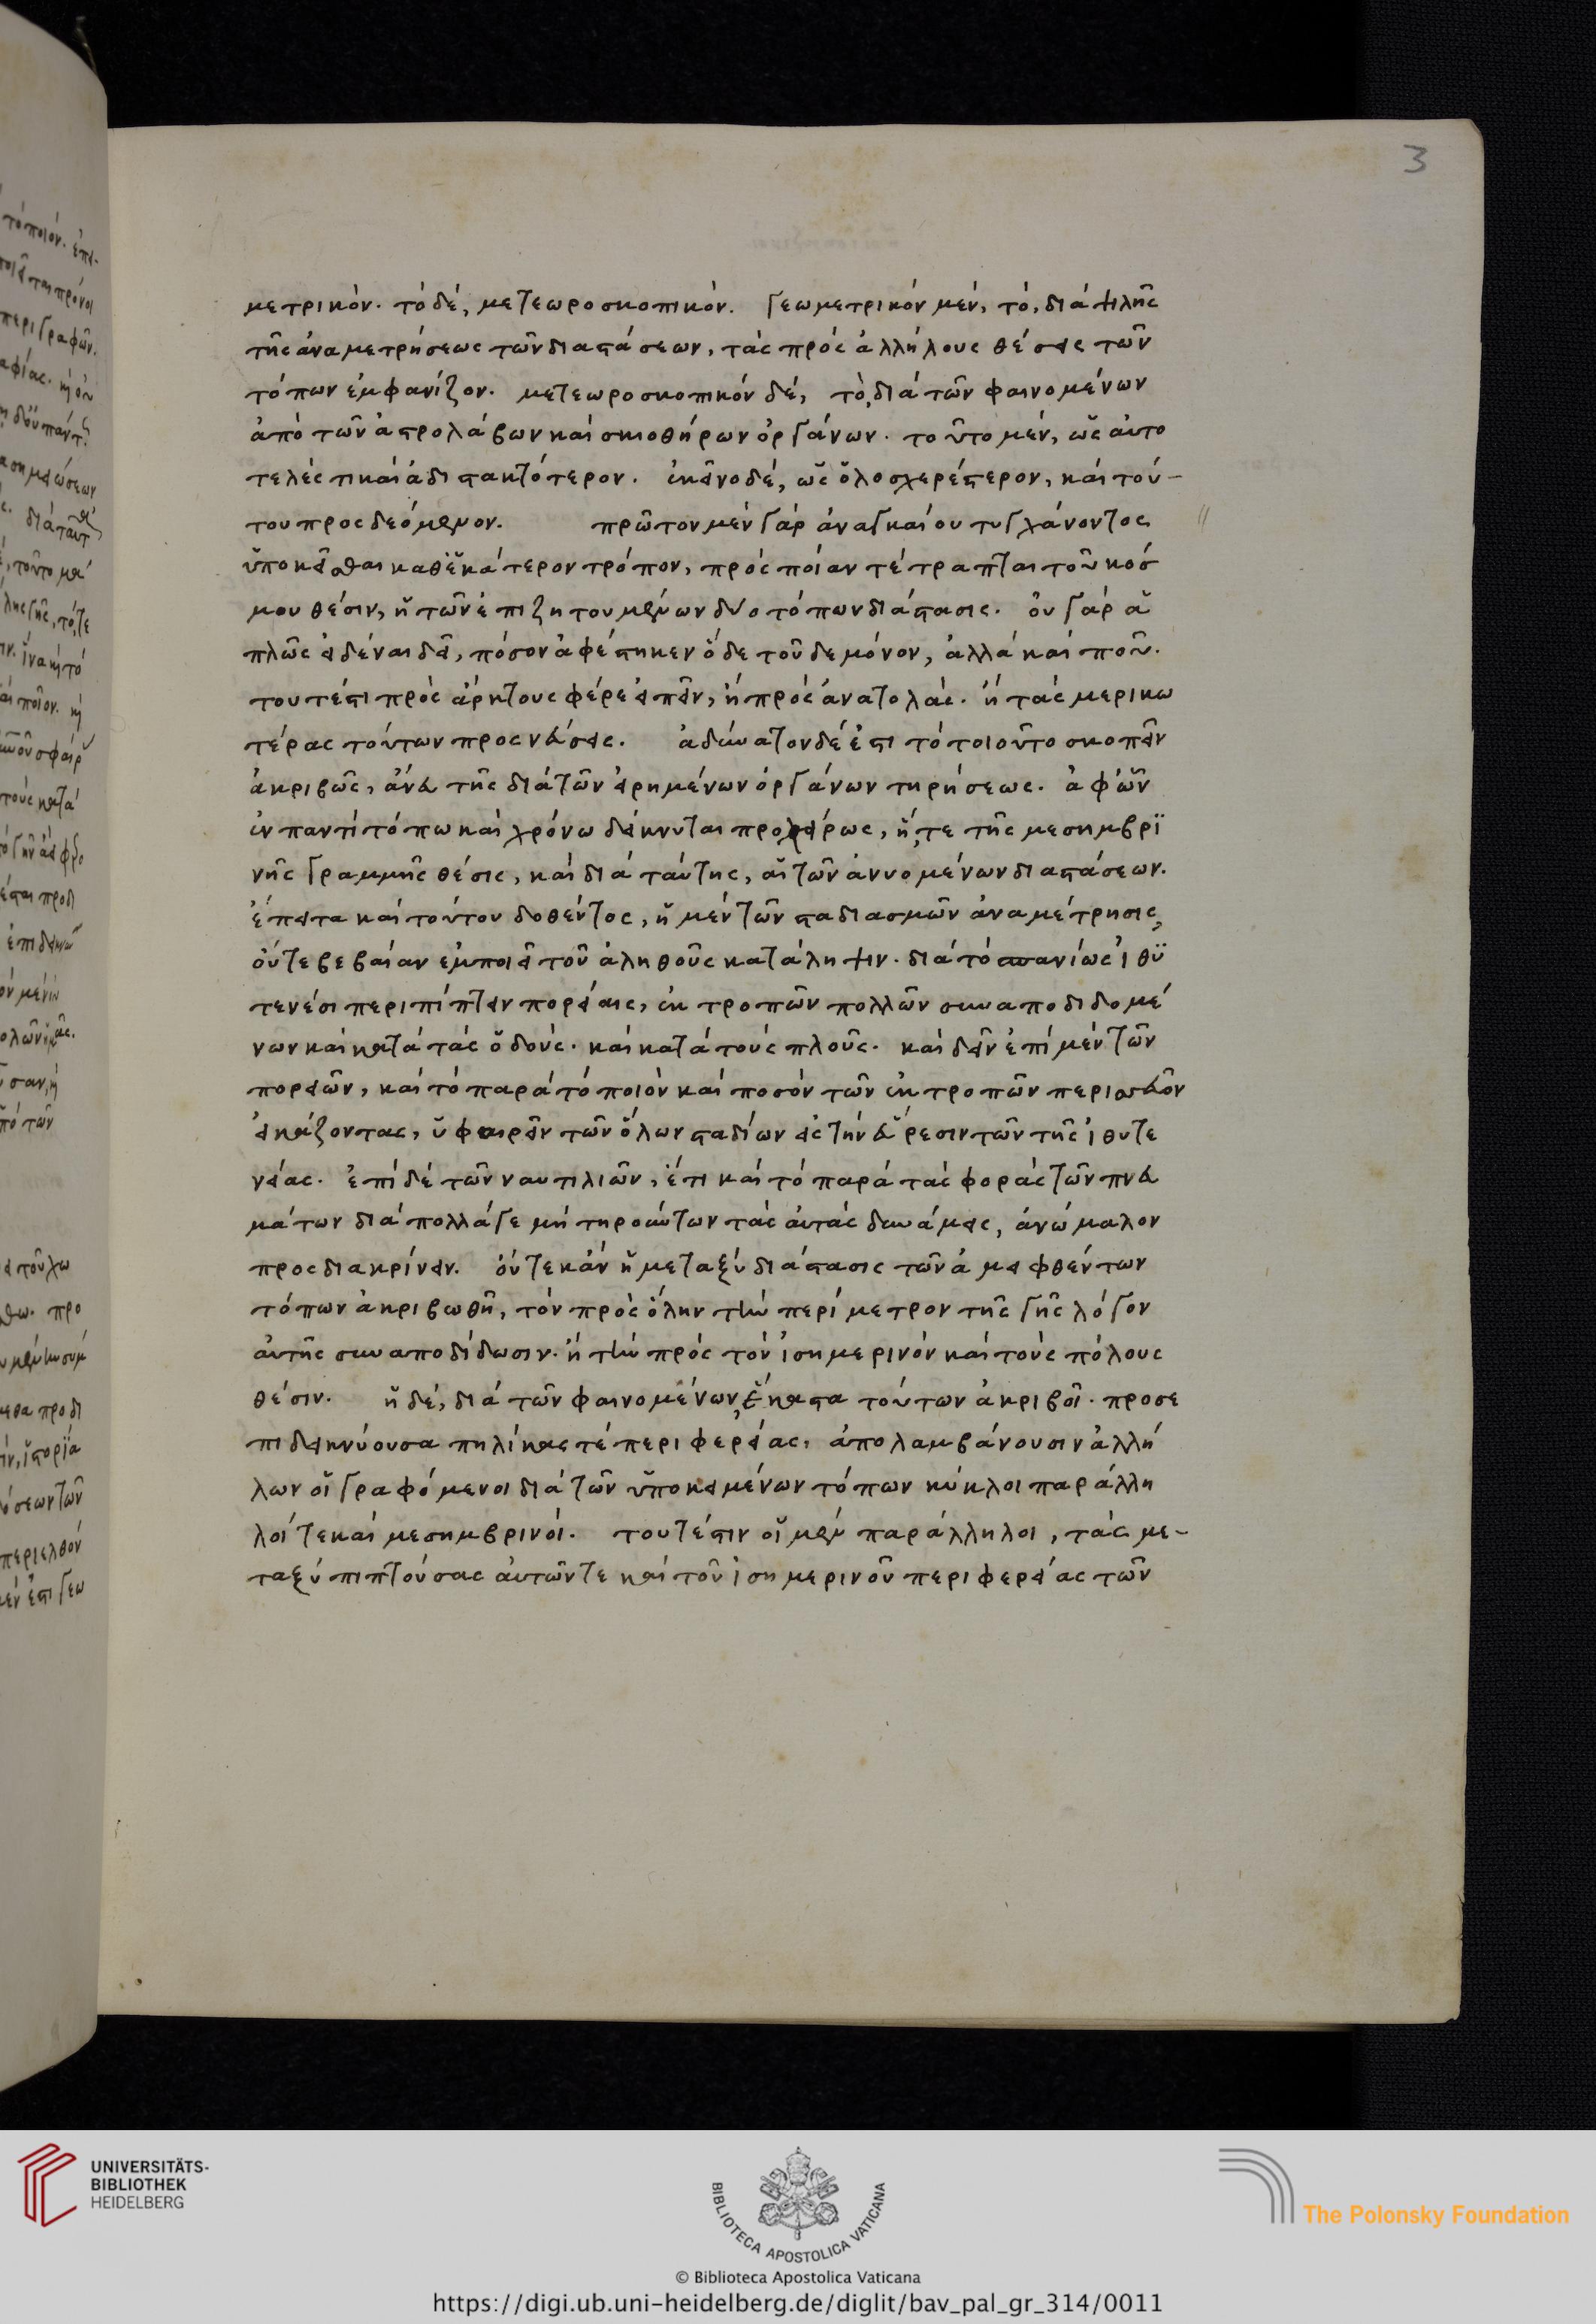 3
μετρικόν. τὸ δέ, μετεωροσκοπικόν. γεωμετρικὸν μέν, τὸ, διὰ ψιλῆς
τῆς ἀναμετρήσεως τῶν διαστάσεων, τὰς πρὸς ἀλλήλους θέσεις τῶν
τόπων ἐμφανίζον. μετεωροσκοπικὸν δέ, τὸ, διὰ τῶν φαινομένων
ἀπὸ τῶν ἀστρολάβων καὶ σκιοθήρων ὀργάνων. τοῦτο μέν, ὡς αὐτο
τελές τι καὶ ἀδιστακτότερον. ἐκεῖνο δέ, ὡς ὁλοσχερέστερον, καὶ τού-
του προσδεόμενον. πρῶτον μὲν γὰρ ἀναγκαίου τυγχάνοντος
ὑποκεῖσθαι καθ' ἑκάτερον τρόπον, πρὸς ποίαν τέτραπται τοῦ κόσ
μου θέσιν, ἡ τῶν ἐπιζητουμένων δύο τόπων διάστασις. οὐ γὰρ ἁ
πλῶς εἰδέναι δεῖ, πόσον ἀφέστηκεν ὅδε τοῦδε μόνον, ἀλλὰ καὶ ποῦ.
τουτέστι πρὸς ἄρκτους φέρε εἰπεῖν, ἢ πρὸς ἀνατολάς. ἢ τὰς μερικω
τέρας τούτων προσνεύσεις. ἀδύνατον δέ ἐστι τὸ τοιοῦτο σκοπεῖν
ἀκριβῶς, ἄνευ τῆς διὰ τῶν εἰρημένων ὀργάνων τηρήσεως. ἀφ' ὧν
ἐν παντὶ τόπω καὶ χρόνω δείκνυται προχείρως, ἥ, τε τῆς μεσημβρι
νῆς γραμμῆς θέσις, καὶ διὰ ταύτης, αἱ τῶν ἀννομένων διαστάσεων.
ἔπειτα καὶ τούτου δοθέντος, ἡ μὲν τῶν σταδιασμῶν ἀναμέτρησις,
οὔτε βεβαίαν ἐμποιεῖ τοῦ ἀληθοῦς κατάληψιν. διὰ τὸ σπανίως ἰθυ
τενέσι περιπίπτειν πορείαις, ἐκτροπῶν πολλῶν συναποδιδομέ
νων καὶ κατὰ τὰς ὁδούς. καὶ κατὰ τοὺς πλοῦς. καὶ δεῖν ἐπὶ μὲν τῶν
πορειῶν, καὶ τὸ παρὰ τὸ ποιὸν καὶ ποσὸν τῶν ἐκτροπῶν περισσεῦον
εἰκάζοντας, ὑφαιρεῖν τῶν ὅλων σταδίων εἰς τὴν εὕρεσιν τῶν τῆς ἰθυτε
νείας. ἐπὶ δὲ τῶν ναυτιλιῶν, ἔτι καὶ τὸ παρὰ τὰς φορὰς τῶν πνευ
μάτων διὰ πολλά γε μὴ τηρούντων τὰς αὐτὰς δυνάμεις, ἀνώμαλον
προσδιακρίνειν. οὔτε κἂν ἡ μεταξὺ διάστασις τῶν ἀμειφθέντων
τόπων ἀκριβωθῆ, τὸν πρὸς ὅλην τὴν περίμετρον τῆς γῆς λόγον
αὐτῆς συναποδίδωσιν. ἢ τὴν πρὸς τὸν ἰσημερινὸν καὶ τοὺς πόλους
θέσιν. ἡ δέ, διὰ τῶν φαινομένων, ἕκαστα τούτων ἀκριβοῖ. προσε
πιδεικνύουσα πηλίκας τὲ περιφερείας, ἀπολαμβάνουσιν ἀλλή
λων οἱ γραφόμενοι διὰ τῶν ὑποκειμένων τόπων κύκλοι παράλλη
λοί τε καὶ μεσημβρινοί. τουτέστιν οἱ μὲν παράλληλοι, τὰς με-
ταξὺ πιπτούσας αὐτῶν τε καὶ τοῦ ἰσημερινοῦ περιφερείας τῶν
UNIVERSITÄTS-
BIBLIOTHEK
HEIDELBERG
BIBLIOTECA APOSTOLICA VATICANA
The Polonsky Foundation
© Biblioteca Apostolica Vaticana
https://digi.ub.uni-heidelberg.de/diglit/bav_pal_gr_314/0011